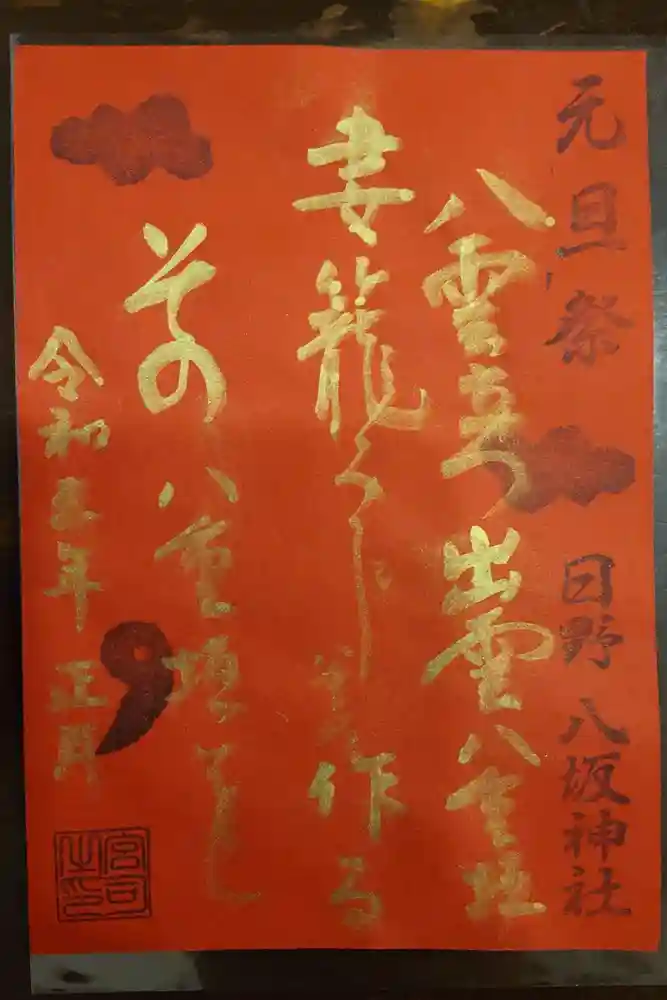 元旦祭 日野八坂神社
八雲立つ出雲八重垣
妻籠みに八重垣作る
その八重垣を
令和五年正月
宮司之印